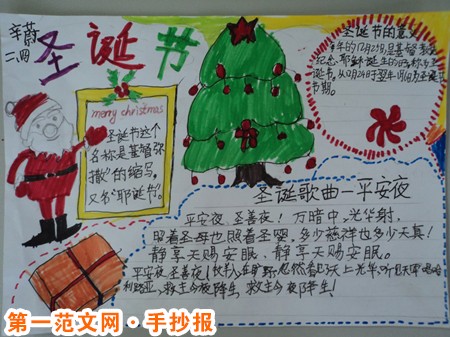 辛蔚
二四
圣诞节
merry christmas
圣诞节这个
名称是基督弥
撒"的缩写,
又名"耶诞节".
圣诞节的意义
年的12月25日,是基督教
纪念耶稣诞生的
诞节,从12月24日
节期。
圣诞歌曲—平安夜
平安夜,圣善夜!万暗中,光华射,
照着圣母也照着圣婴,多少慈祥也多少天真!
静享天赐安眠,静享天赐安眠。
平安夜,圣善夜!牧羊人,在旷野,忽然看见天上光华,听见天军唱哈
利路亚,救主今夜降生,救主今夜降生!
第一范文网·手抄报